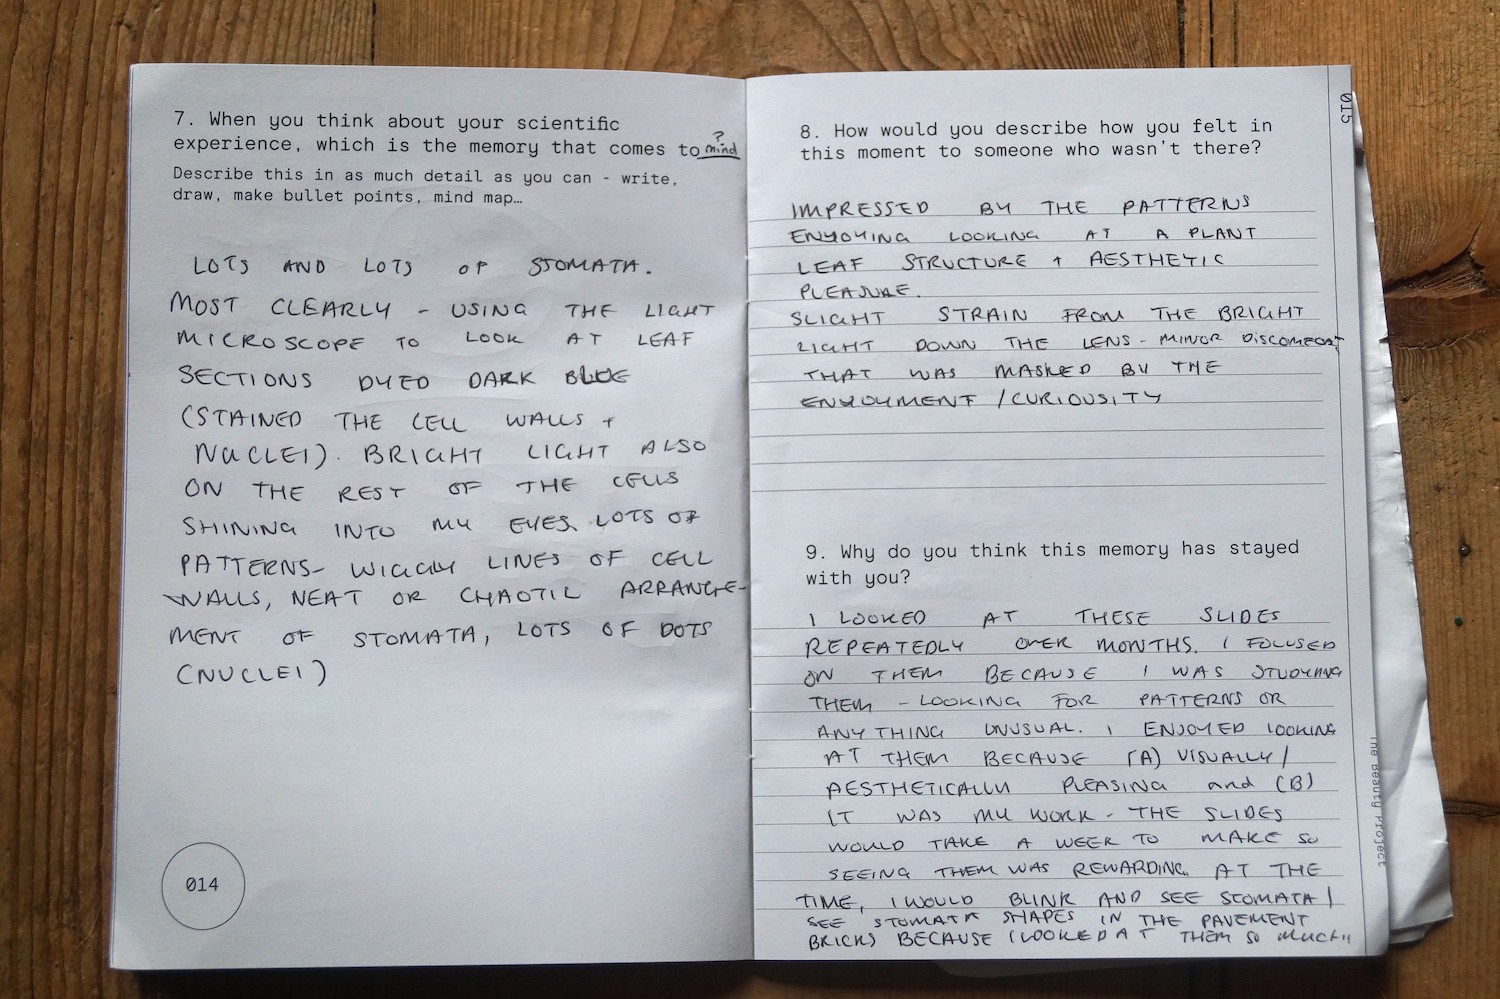 7. When you think about your scientific
experience, which is the memory that comes to mind?
Describe this in as much detail as you can - write,
draw, make bullet points, mind map…
LOTS AND LOTS OF STOMATA.
MOST CLEARLY - USING THE LIGHT
MICROSCOPE TO LOOK AT LEAF
SECTIONS DYED DARK BLUE
(STAINED THE CELL WALLS +
NUCLEI). BRIGHT LIGHT ALSO
ON THE REST OF THE CELLS
SHINING INTO MY EYES. LOTS OF
PATTERNS- WIGGLY LINES OF CELL
WALLS, NEAT OR CHAOTIC ARRANGE-
MENT OF STOMATA, LOTS OF DOTS
(NUCLEI)
014
015
8. How would you describe how you felt in
this moment to someone who wasn't there?
IMPRESSED BY THE PATTERNS
ENJOYING LOOKING AT A PLANT
LEAF STRUCTURE + AESTHETIC
PLEASURE.
SLIGHT STRAIN FROM THE BRIGHT
LIGHT DOWN THE LENS - MINOR DISCOMFORT
THAT WAS MASKED BY THE
ENJOYMENT / CURIOUSITY
9. Why do you think this memory has stayed
with you?
I LOOKED AT THESE SLIDES
REPEATEDLY OVER MONTHS. I FOCUSED
ON THEM BECAUSE I WAS STUDYING
THEM - LOOKING FOR PATTERNS OR
ANYTHING UNUSUAL. I ENJOYED LOOKING
AT THEM BECAUSE (A) VISUALLY/
AESTHETICALLY PLEASING and (B)
IT WAS MY WORK - THE SLIDES
WOULD TAKE A WEEK TO MAKE SO
SEEING THEM WAS REWARDING. AT THE
TIME, I WOULD BLINK AND SEE STOMATA /
SEE STOMATA SHAPES IN THE PAVEMENT
BRICKS BECAUSE I LOOKED AT THEM SO MUCH!!
The Beauty Project